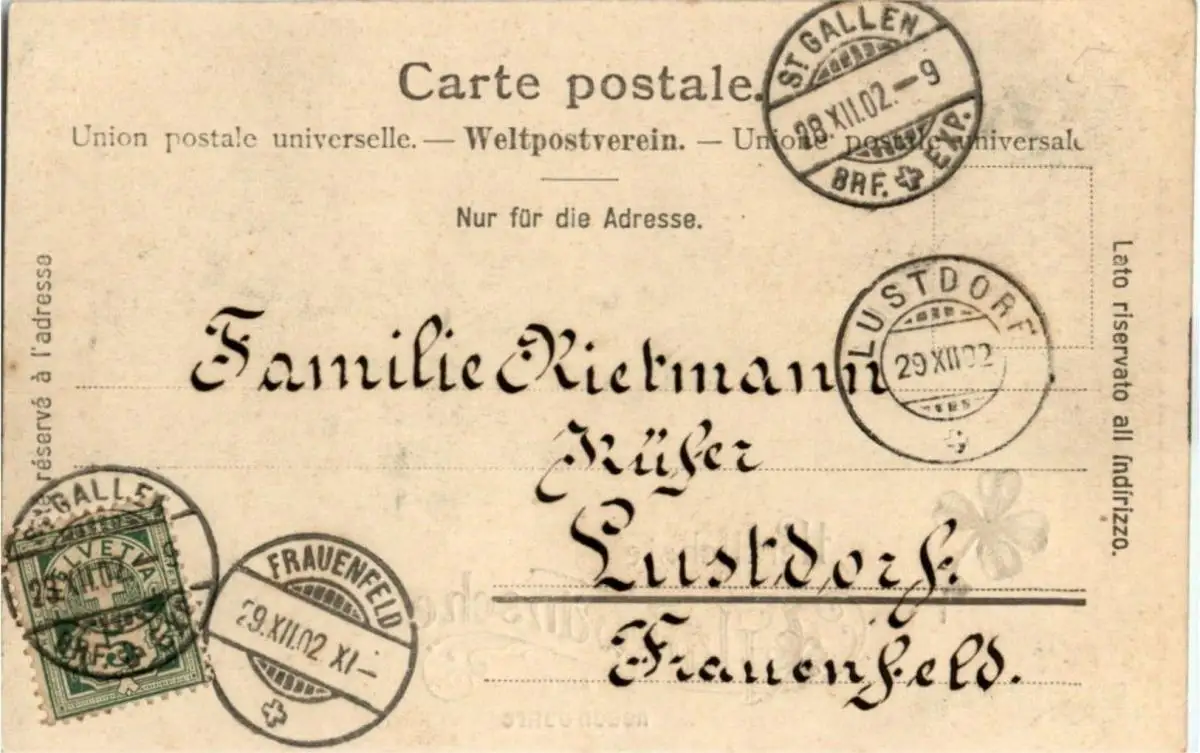 Carte postale.
Union postale universelle. — Weltpostverein. — Unione postale universale
Nur für die Adresse.
ST GALLEN
28.XII.02.–9
BRF. EXP.
LUSTDORF
29 XII 02
réservé à l'adresse
Lato riservato all indirizzo.
Familie Rietmann
Küfer
Lustdorf.
Frauenfeld.
GALLEN
BRF.
HELVETIA
5
FRAUENFELD
29.XII.02 XI–